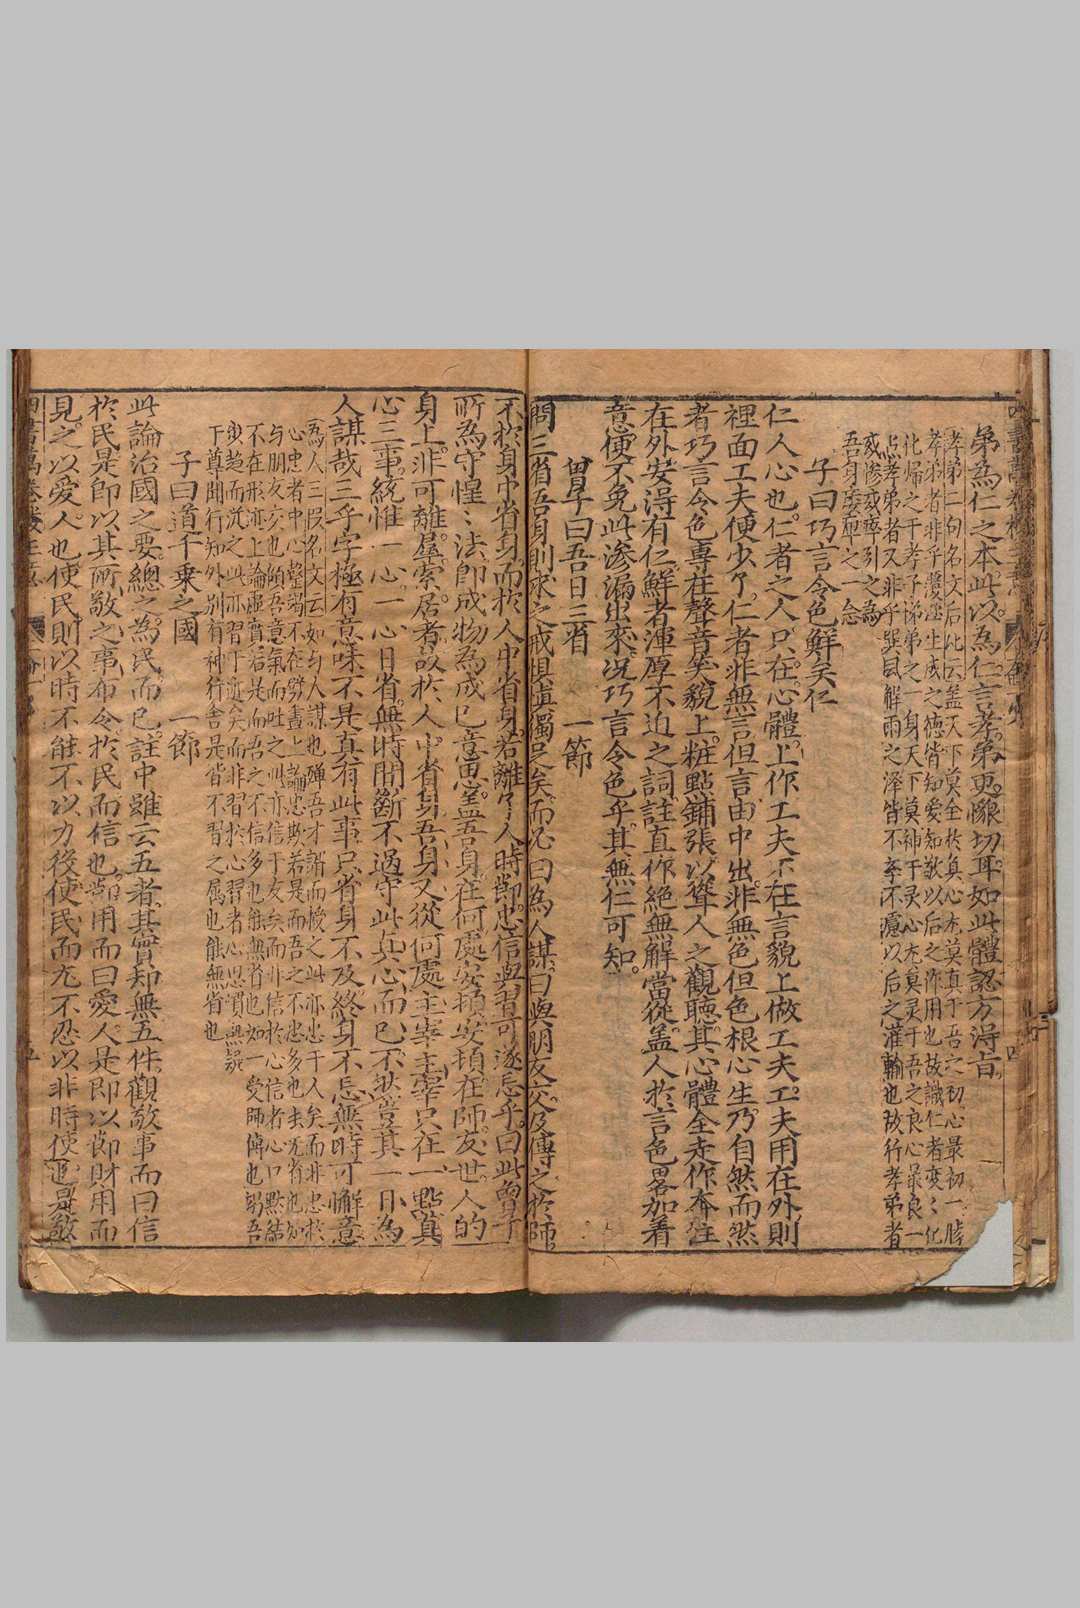 弟為仁之本此以為仁言孝弟更隳切耳如此體認方淂旨
孝弟二句名文后比云盖天下莫全於真心尤莫真于吾之初心最初一膝
孝弟者非乎薆逕生成之德皆知愛知敬以后之作用也故識仁者变〻化
化歸之于孝子悌弟之一身天下莫神于灵心尤莫灵于吾之良心最良一
点孝弟者又非乎巽風解雨之泽皆不牵不慮以后之灌輸也故行孝弟者
或惨或舒引之為
吾身委曲之一念
子曰巧言令色鮮矣仁
仁人心也仁者之人只在心體上作工夫不在言貌上做工夫工夫用在外則
裡面工夫便少了仁者非無言但言由中出非無色但色根心生乃自然而然
者巧言令色專在聲音笑貌上粧點鋪張以聳人之觀聽其心體全走作奔注
在外安淂有仁鮮者渾厚不迫之詞註直作絕無解當從盖人於言色畧加着
意便不免此滲漏出來况巧言令色乎其無仁可知
曾子曰吾日三省 一節
問三省吾身則求之戒惧慎獨足矣而必曰為人謀曰與朋友交及傳之於師
不於身中省身而於人中省身若離了人時卽忠信與習可遂忘乎曰此曾子
所為守惶〻法卽成物為成已意思盖吾身在何處安頓安頓在師友世人的
身上非可離羣索居者故於人中省身吾身又從何處主宰主宰只在一點真
心三事統惟一心一心日省無時間斷不過守此真心而已不然豈其一日為
人謀哉三乎字極有意味不是真有此事只省身不及終身不忘無時可懈意
為人三段名文云如与人謀也殫吾才謂而授之此亦忠于人矣而非忠於
心忠者中心罄竭不在勞畫上論忠欺若是而吾之不忠多也去无省也如
与朋友交也傾吾意氣而吐之此亦信于友矣而非信於心信者心口點結
不在形迹上論虛實若是而吾之不信多也能無省也如一受師傳也躬吾
步趋而沉之此亦習于近矣而非習於心習者心思慣無䜛
于尊聞行知外别有神行舍是皆不習之属也能無省也
子曰道千乗之國 一節
此論治國之要總之為民而已註中雖云五者其實却無五件觀敬事而曰信
於民是即以其所敬之事布令於民而信也節用而曰愛人是即以節財用而
見之以愛人也使民則以時不能不以力役使民而尤不忍以非時使也是敬